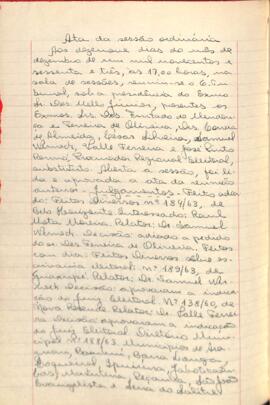 Ata da sessão ordinária
Aos dezenove dias do mês de
dezembro de um mil novecentos e
sessenta e três, às 17,00 horas, na
sala de sessões, reuniu-se o E. Tri-
bunal, sob a presidência do Exmo
Sr. Des. Mello Júnior, presentes os
Exmos Srs. Des. Furtado de Mendon-
ça e Ferreira de Oliveira, Drs.
de Almeida, Cesar Silveira, Samuel
Werneck, Valle Ferreira e José Pinto
Renno, Procurador Regional Eleitoral,
substituto. Aberta a sessão, foi li-
da e aprovada a ata da reunião
anterior. Julgamentos. Feitos dia-
do. Feitos Diversos nº 184/63, de
Belo Horizonte. Interessado: Raul
Mota Moreira. Relator: Dr. Samuel
Werneck. Decisão: adiado a pedido
do sr. Des. Ferreira de Oliveira. Feitos
com dia. Feitos Diversos sôbre
eleitoral: nº 189/63, de
Guaxupé. Relator: Dr. Samuel Wer-
neck. Decisão: aprovaram a indica-
ção do juiz eleitoral. Nº 138/60, de
Nova Resende. Relator: Dr. Valle Ferrei-
ra. Decisão: aprovaram a indicação
do juiz eleitoral. Diretório Munici-
pal nº 188/63. Municípios de
Bonfim, Barra Longa,
Bogueirol, Ipuiuna, Jaboticatu-
bas, Matutina, Peçanha, São João
Evangelista e Serra do Salitre